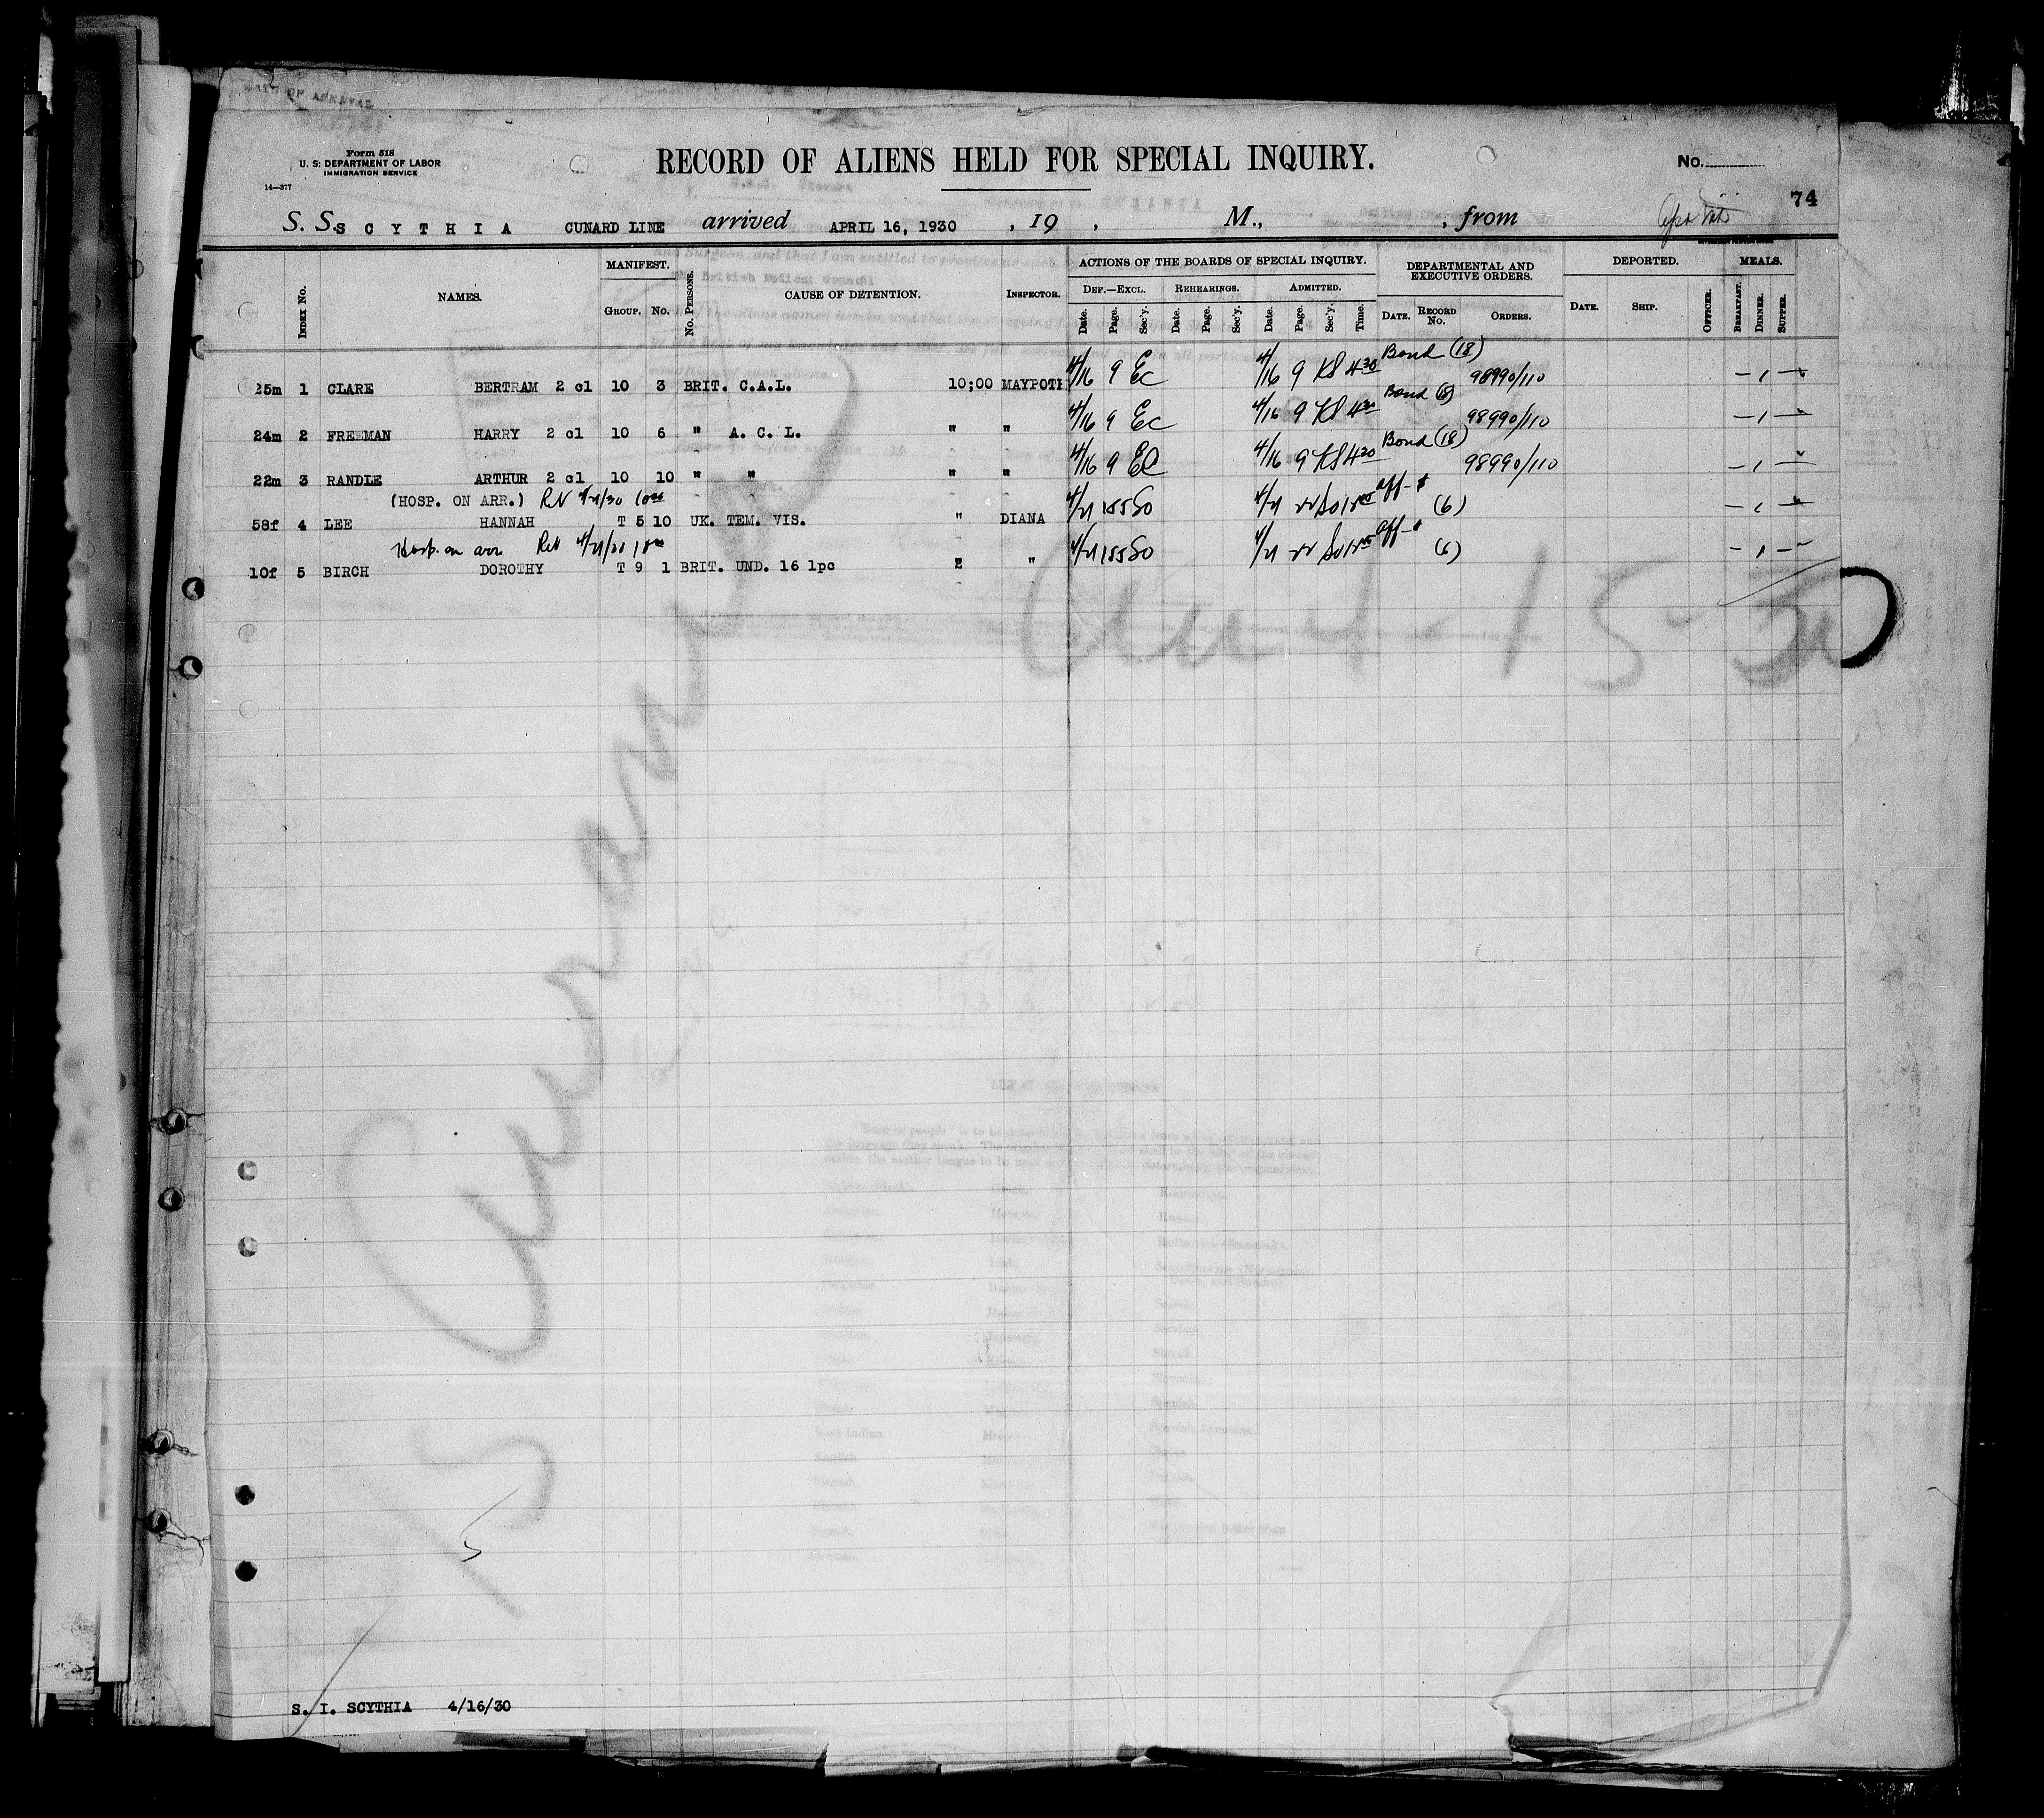 Form 518
U. S. DEPARTMENT OF LABOR
IMMIGRATION SERVICE
14—377
RECORD OF ALIENS HELD FOR SPECIAL INQUIRY.
No.
74
S. S. S C Y T H I A CUNARD LINE arrived APRIL 16, 1930 , 19 , M., , from
Index No. NAMES. MANIFEST. Group. No. No. Persons. CAUSE OF DETENTION. Inspector. ACTIONS OF THE BOARDS OF SPECIAL INQUIRY. DEPARTMENTAL AND EXECUTIVE ORDERS. DEPORTED. MEALS.
Def.—Excl. Rehearings. Admitted.
Date. Page. Sec'y. Date. Page. Sec'y. Date. Page. Sec'y. Time. Date. Record No. Orders. Date. Ship. Officer. Breakfast. Dinner. Supper.
Bond (18)
25m 1 CLARE BERTRAM 2 cl 10 3 BRIT. C.A.L. 10;00 MAYPOTH 4/16 9 EC 4/16 9 KS 4 30 98990/110
Bond (18)
24m 2 FREEMAN HARRY 2 cl 10 6 " A. C. L. " " 4/16 9 EC 4/16 9 KS 4 30 98990/110
Bond (18)
22m 3 RANDLE ARTHUR 2 cl 10 10 " " " " 4/16 9 EC 4/16 9 KS 4 30 98990/110
(HOSP. ON ARR.)
58f 4 LEE HANNAH T 5 10 UK. TEM. VIS. " DIANA 4/21 (6)
Hosp. on arr
10f 5 BIRCH DOROTHY T 9 1 BRIT. UND. 16 1pc " " 4/21 (6)
S. I. SCYTHIA 4/16/30